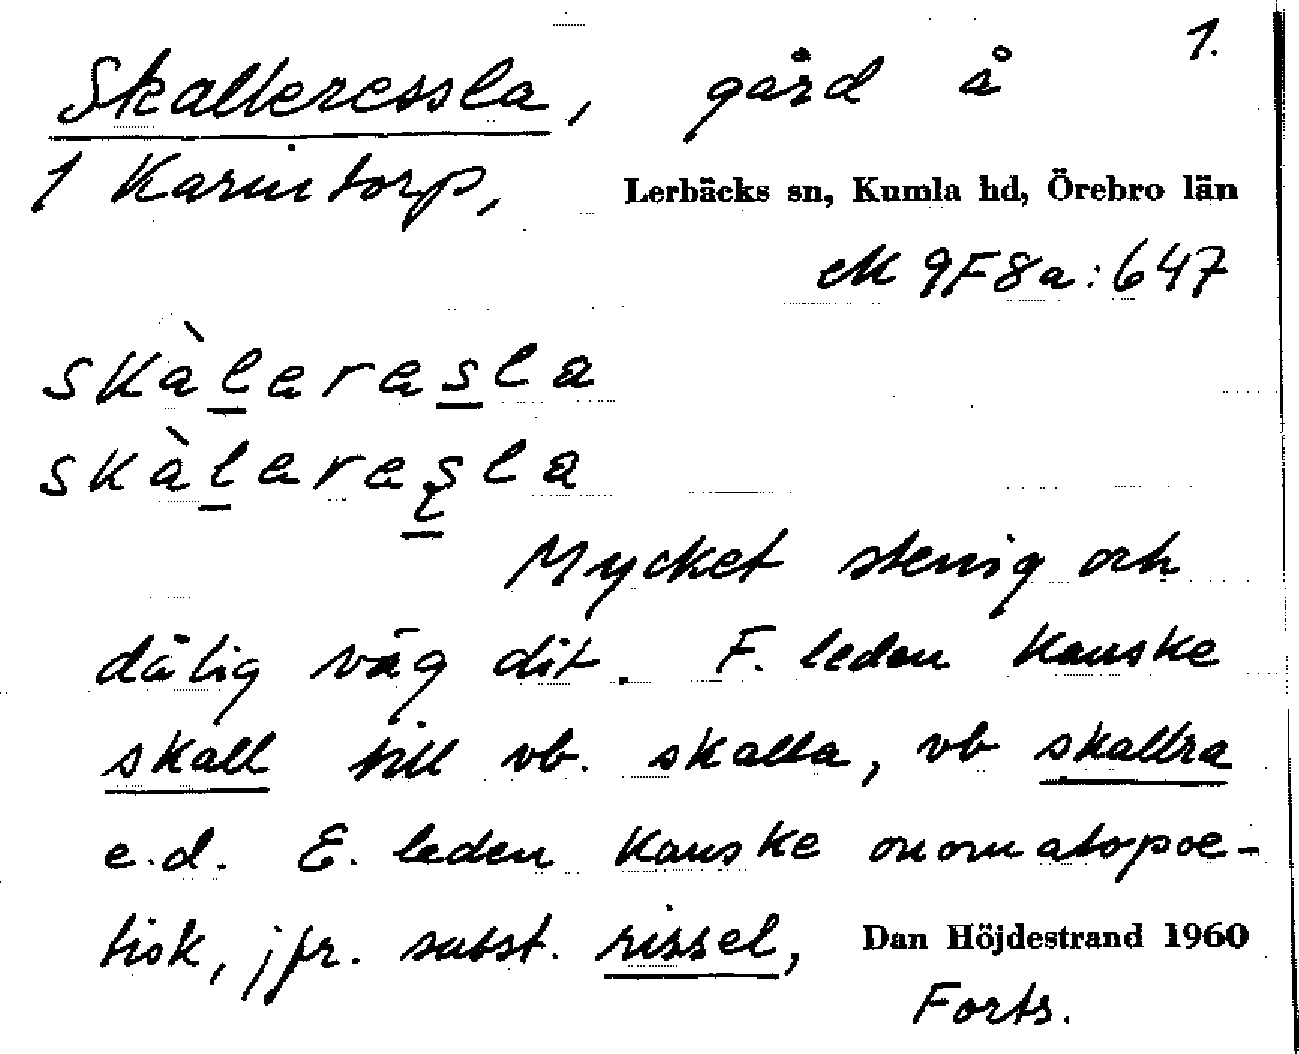 1.
Skalleressla, gård å
1 Karintorp, Lerbäcks sn, Kumla hd, Örebro län
ek 9F8a:647
skàleresla
skàleresla
Mycket stenig och
dålig väg dit. F. leden kanske
skall till vb. skalla, vb skallra
e.d. E. leden kanske onomatopoe-
tisk, jfr. subst. rissel, Dan Höjdestrand 1960
Forts.